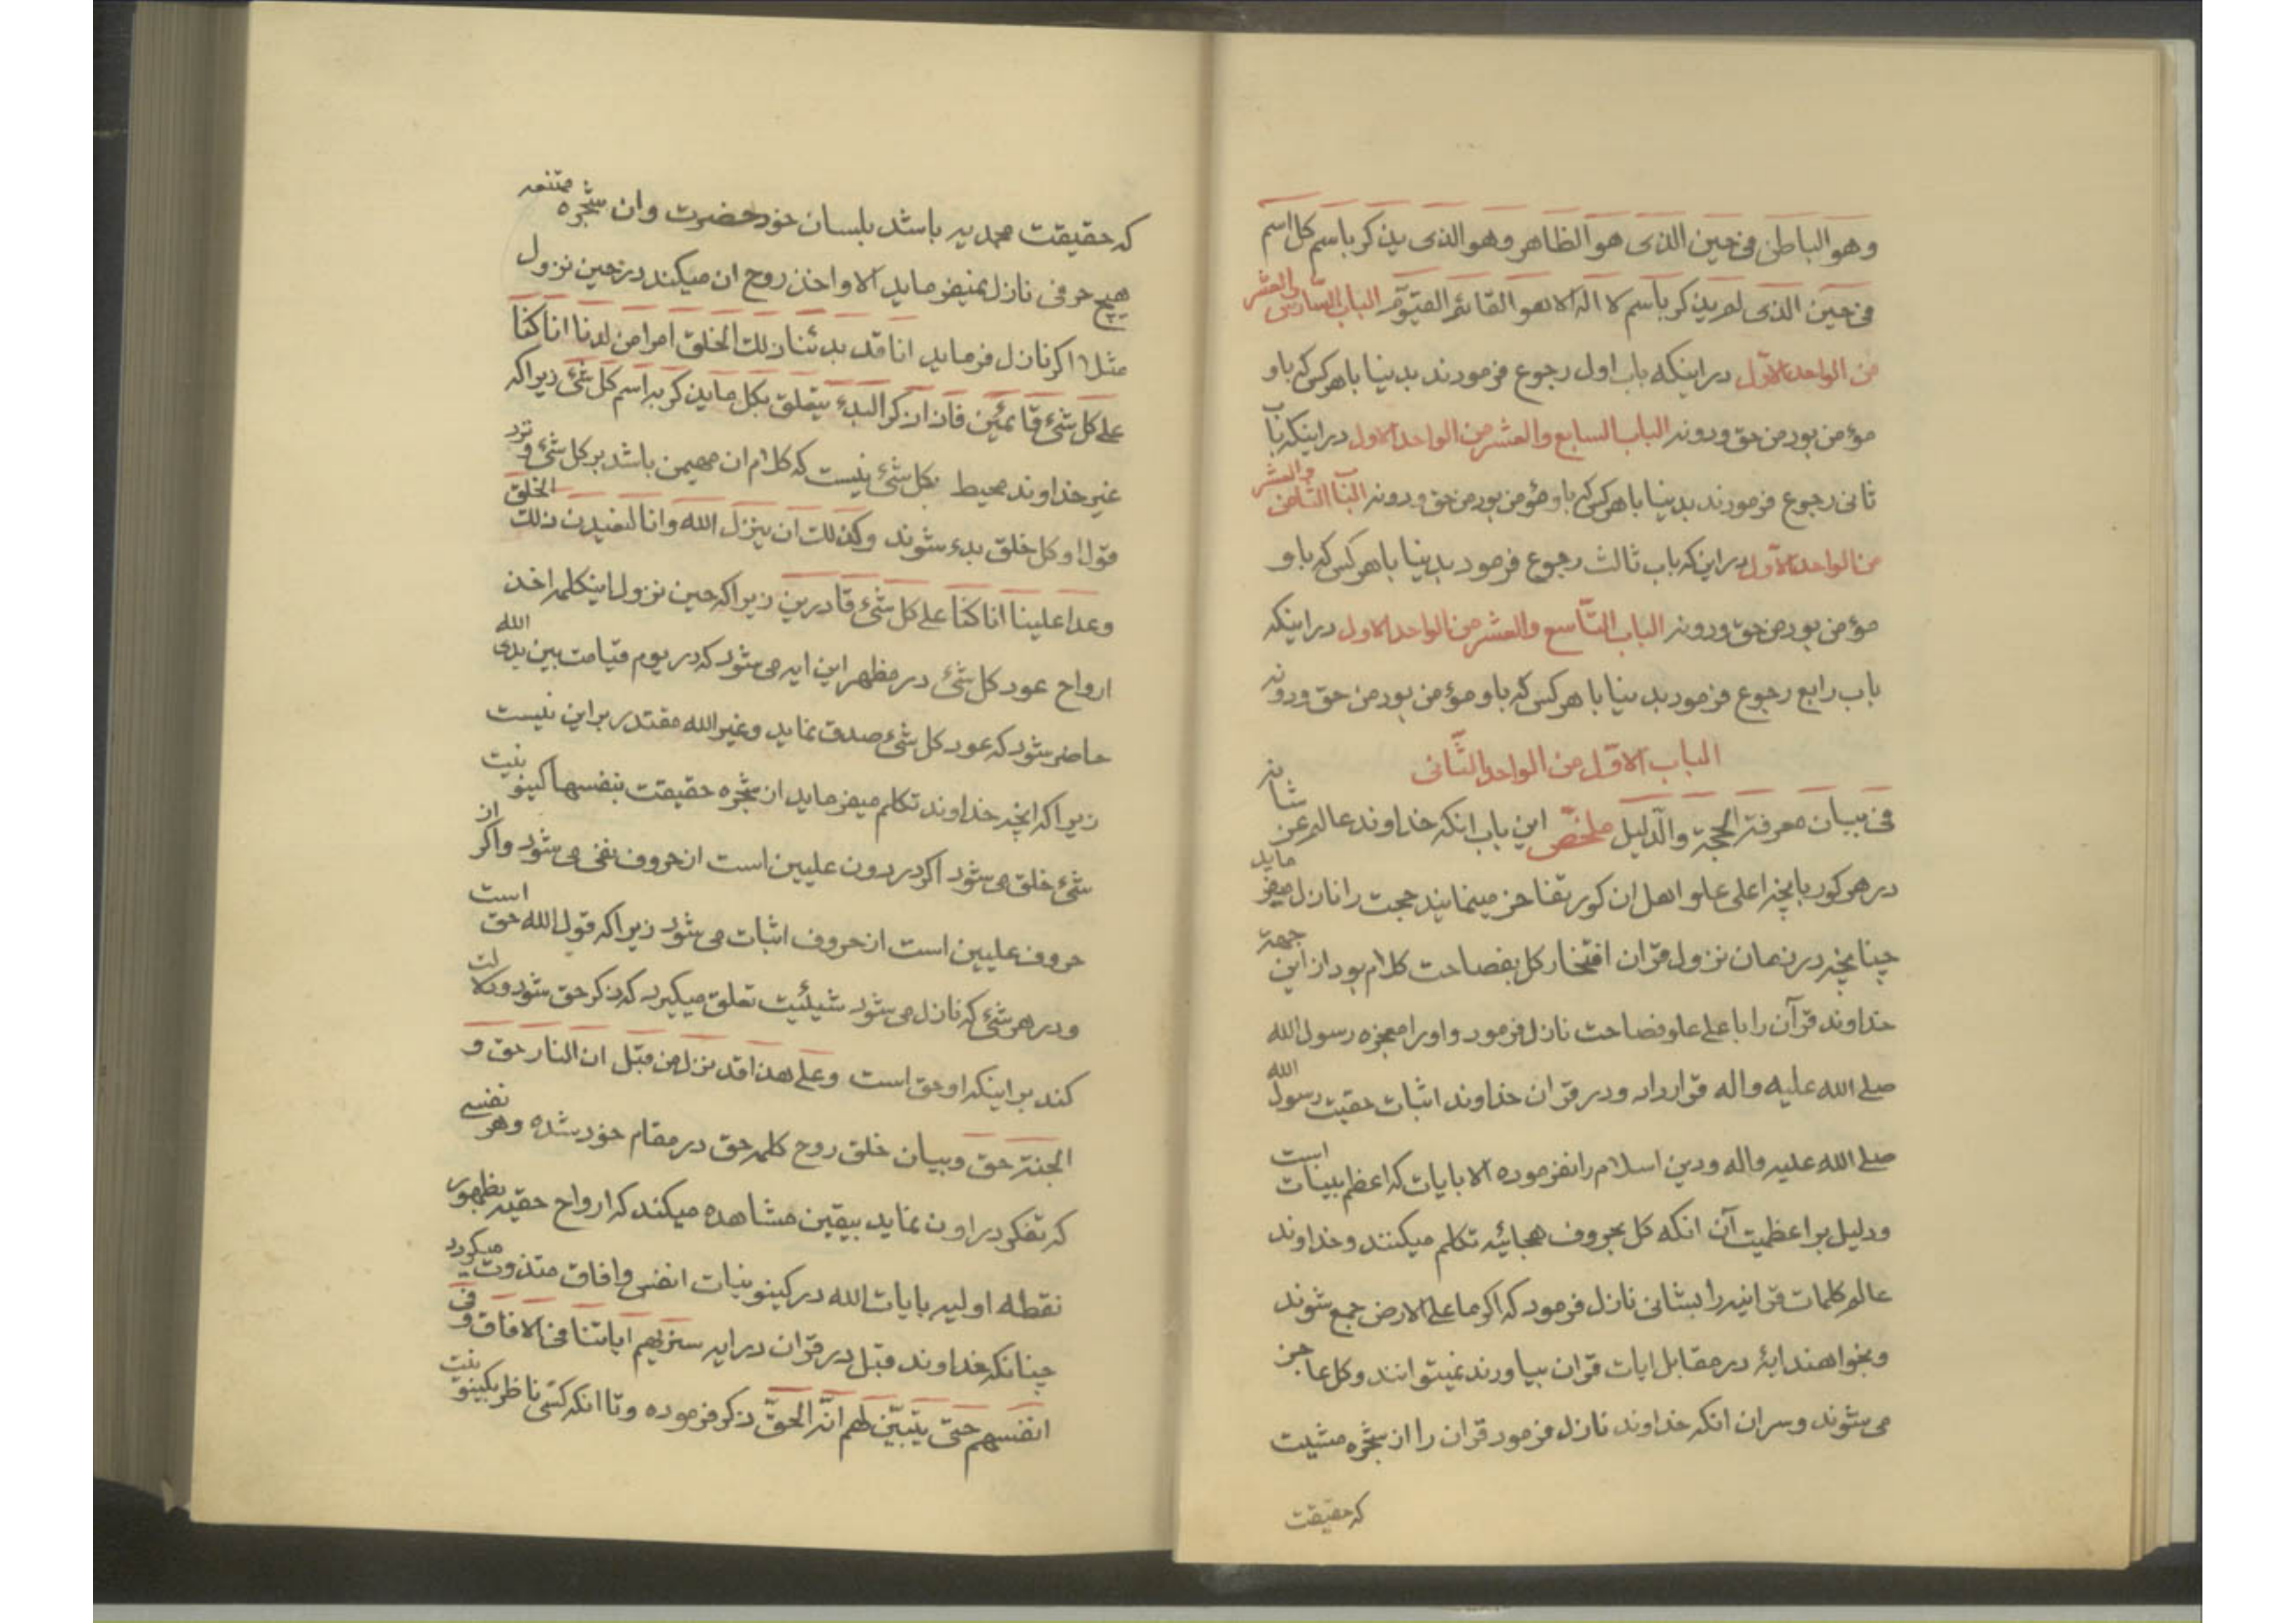 وهو الباطن فی حین الذی هو الظاهر وهو الذی یذکر باسم کل اسم
فی حین الذی لم یذکر باسم لا اله الا هو القائم القیّوم الباب السادس والعشر
من الواحد الاوّل در اینکه باب اول رجوع فرمودند بدینا با هرکس که باو
مؤمن بود من حق و دونه الباب السابع والعشر من الواحد الاول در اینکه باب
ثانی رجوع فرمودند بدینا با هرکس که باو مؤمن بود من حق و دونه الباب الثامن والعشر
من الواحد الاوّل در این که باب ثالث رجوع فرمود بدینا با هرکس که باو
مؤمن بود من حق و دونه الباب التّاسع والعشر من الواحد الاول در اینکه
باب رابع رجوع فرمود بدینا با هرکس که باو مؤمن بود من حق ودونه
الباب الاوّل من الواحد الثّانی
فی بیان معرفة الحجة والدّلیل ملخّص این باب انکه خداوند عالم عز شانه
در هر کور بانچه اعلی علو اهل ان کور تفاخر مینمایند حجت را نازل میفرماید
چنانچه در زمان نزول قران افتخار کل بفصاحت کلام بود از این جهة
خداوند قرآن را باعلی علو فصاحت نازل فرمود و او را معجزه رسول الله
صلی الله علیه واله قرار داد و در قران خداوند اثبات حقیت رسول الله
صلی الله علیه واله ودین اسلام را نفرموده الا بایات که اعظم بینات است
ودلیل بر اعظمیت آن انکه کل بحروف هجائیه تکلم میکنند و خداوند
عالم کلمات قرانیه را بشانی نازل فرمود که اکر ما علی الارض جمع شوند
وبخواهند ایهٔ در مقابل ایات قران بیاورند نمیتوانند وکل عاجز
می شوند وسران انکه خداوند نازل فرمود قران را از شجره مشیت
که حقیقت
که حقیقت محمدیه باشد بلسان خود حضرت وان شجره ممتنعه
هیچ حرفی نازل نمیفرماید الا واخذ روح ان میکند در حین نزول
مثلا اکر نازل فرماید انا قد بدئنا ذلک الخلق امرا من لدنا انا کنا
علی کل شیٔ قائمین فان ذکر البدء یتعلق بکل ما یذکر به اسم کل شیٔ زیرا که
غیر خداوند محیط بکل شیٔ نیست که کلام ان مهیمن باشد بر کل شیٔ و نزد
قول او کل خلق بدء شوند وکذلک ان ینزل الله وانا لنعیدن ذلک الخلق
وعدا علینا انا کنا علی کل شیٔ قادرین زیرا که حین نزول اینکلمه اخذ
ارواح عود کل شیٔ در مظهر این ایه می شود که در یوم قیامت بین یدی الله
حاضر شود که عود کل شیٔ صدق نماید وغیر الله مقتدر بر این نیست
زیرا که انچه خداوند تکلم میفرماید از شجره حقیقت بنفسها کینونیت
شیٔ خلق می شود اکر در دون علیین است از حروف نفی می شود واکر از
حروف علیین است از حروف اثبات می شود زیرا که قول الله حق است
ودر هر شیٔ که نازل می شود شیئیت تعلق میکیرد که ذکر حق شود و دلالت
کند بر اینکه او حق است وعلی هذا قد نزل من قبل ان النار حق و
الجنة حق وبیان خلق روح کلمه حق در مقام خود شده وهر نفسی
که تفکر در او ن نماید بیقین مشاهده میکند که ارواح حقیه بظهور
نقطه اولیه بایات الله در کینونیات انفس وافاق متذوت میکردد
چنانکه خداوند قبل در قران در ایه سنریهم ایاتنا فی الافاق و فی
انفسهم حتی یتبیّن لهم انّه الحقّ ذکر فرموده وتا انکه کسی ناظر بکینونیت